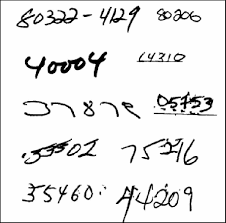 80322-4129 80206
40004 14310
37878 05753
35502 75216
35460 44209